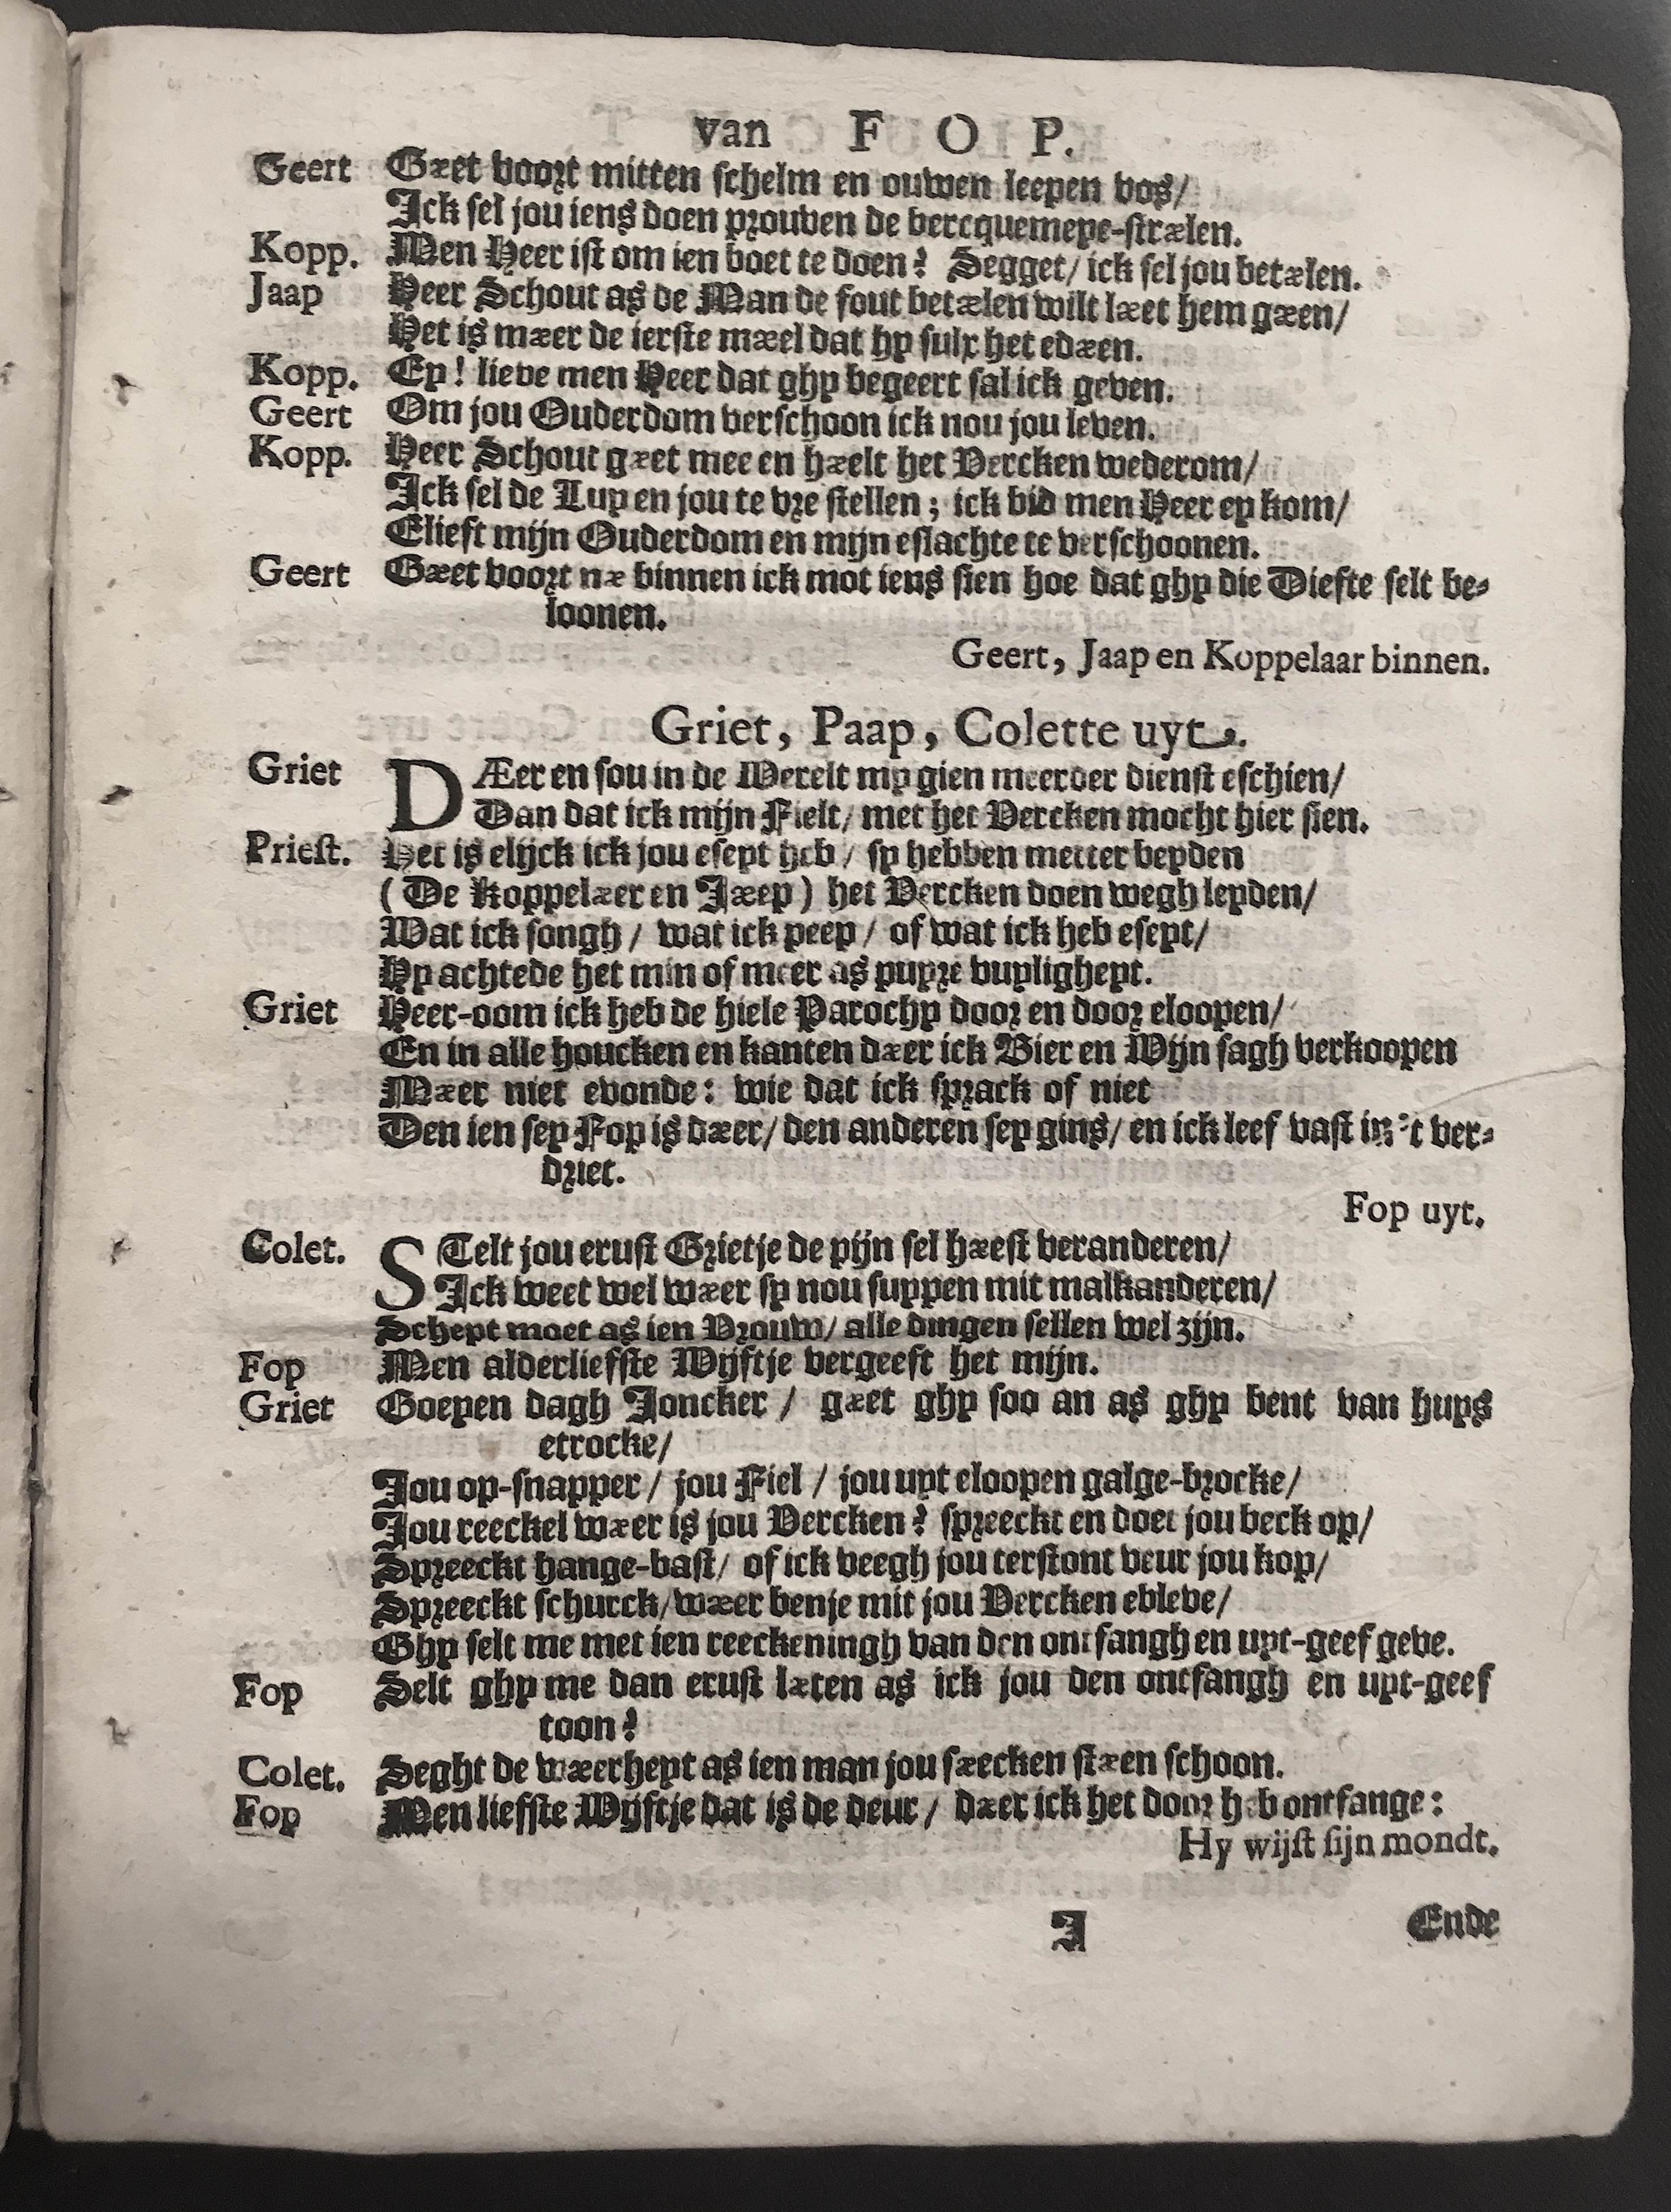 van F O P.
Geert Gæet voort mitten schelm en ouwen leepen vos/
Ick sel jou iens doen prouven de vercquemeye-strælen.
Kopp. Men Heer ist om ien boet te doen? Segget/ ick sel jou betælen.
Jaap Heer Schout as de Man de fout betælen wilt læet hem gæen/
Het is mæer de ierste mæel dat hy sulx het edæen.
Kopp. Ey! lieve men Heer dat ghy begeert sal ick geven.
Geert Om jou Ouderdom verschoon ick nou jou leven.
Kopp. Heer Schout gæet mee en hælt het Vercken wederom/
Ick sel de Luy en jou te vre stellen; ick bid men Heer ey kom/
Elieft mijn Ouderdom en mijn eslachte te verschoonen.
Geert Gæet voort næ binnen ick mot iens sien hoe dat ghy die Diefte selt be-
loonen.
Geert, Jaap en Koppelaar binnen.
Griet, Paap, Colette uyt.
Griet DÆer en sou in de Werelt my gien meerder dienst eschien/
Dan dat ick mijn Fielt/ met het Vercken mocht hier sien.
Priest. Het is elijck ick jou eseyt heb/ sy hebben metter beyden
(De Koppelæer en Jæep) het Vercken doen wegh leyden/
Wat ick songh/ wat ick peep/ of wat ick heb eseyt/
Hy achtede het min of meer as puyre vuyligheyt.
Griet Heer-oom ick heb de hiele Parochy door en door eloopen/
En in alle houcken en kanten dæer ick Bier en Wijn sagh verkoopen
Mæer niet evonde: wie dat ick sprack of niet
Den ien sey Fop is dæer/ den anderen sey gins/ en ick leef vast in 't ver-
driet.
Fop uyt.
Colet. STelt jou erust Grietje de pijn sel hæest veranderen/
Ick weet wel wæer sy nou suypen mit malkanderen/
Schept moet as ien Vrouw/ alle dingen sellen wel zijn.
Fop Men alderliefste Wijftje vergeeft het mijn.
Griet Goeyen dagh Joncker/ gæet ghy soo an as ghy bent van huys
etrocke/
Jou op-snapper/ jou Fiel/ jou uyt eloopen galge-brocke/
Jou reeckel wæer is jou Vercken? spreeckt en doet jou beck op/
Spreeckt hange-bast/ of ick veegh jou terstont veur jou kop/
Spreeckt schurck/ wæer benje mit jou Vercken ebleve/
Ghy selt me met ien reeckeningh van den ontfangh en uyt-geef geve.
Fop Selt ghy me dan erust læten as ick jou den ontfangh en uyt-geef
toon?
Colet. Seght de wæerheyt as ien man jou sæecken stæen schoon.
Fop Men liefste Wijftje dat is de deur/ dæer ick het door heb ontfange:
Hy wijst sijn mondt.
I Ende